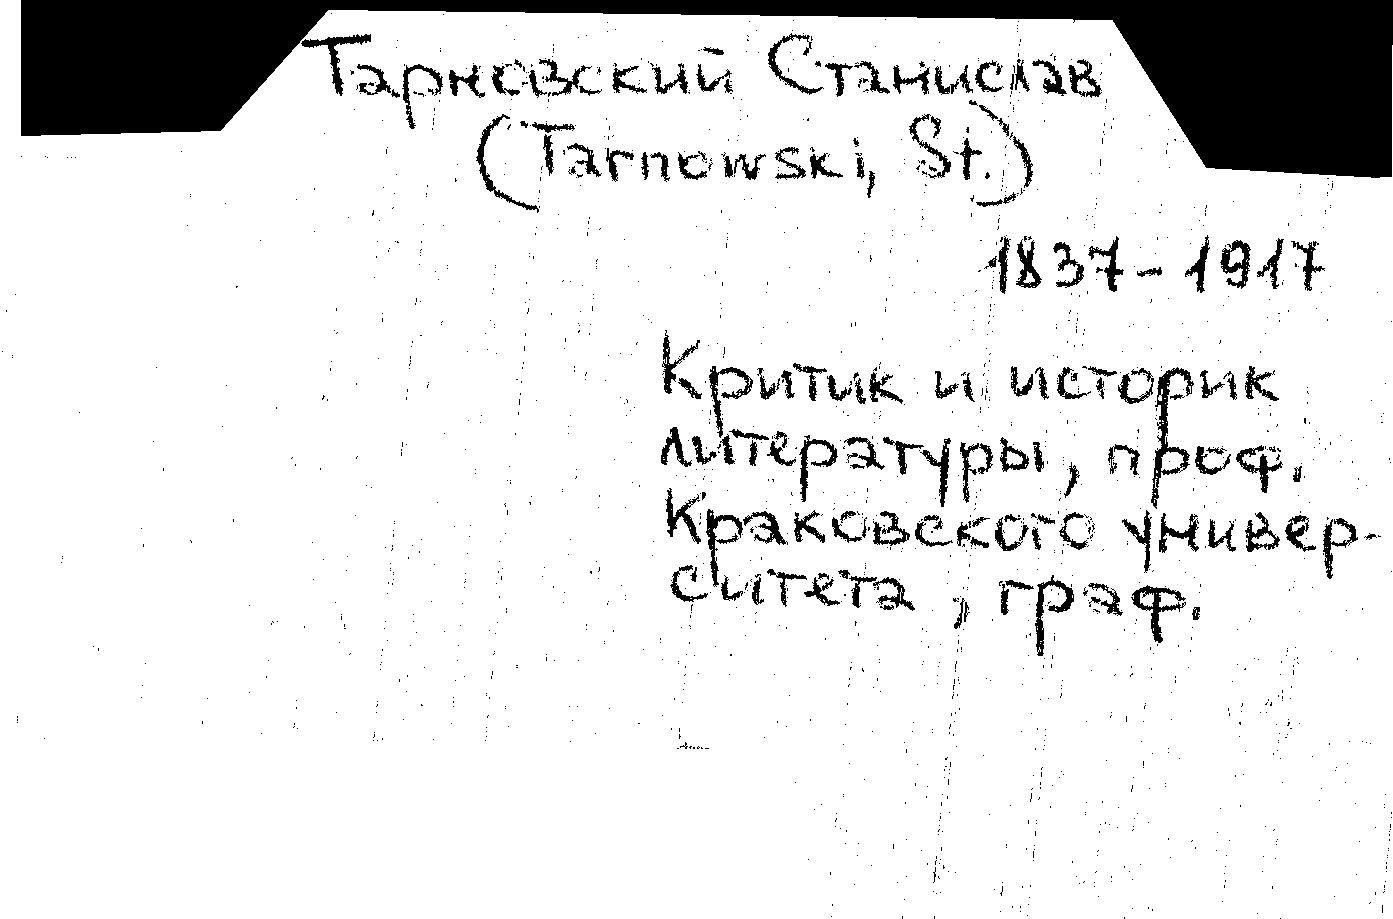 Тарновский Станислав
(Tarnowski, St.)
1837-1917
Критик и историк
литературы, проф.
Краковского универ-
ситета, граф.